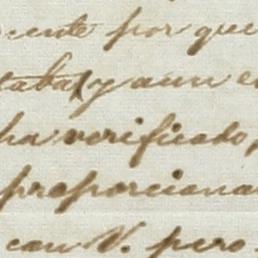 cente por que
taba, y aun e
ha verificado,
proporciona
con V. pero